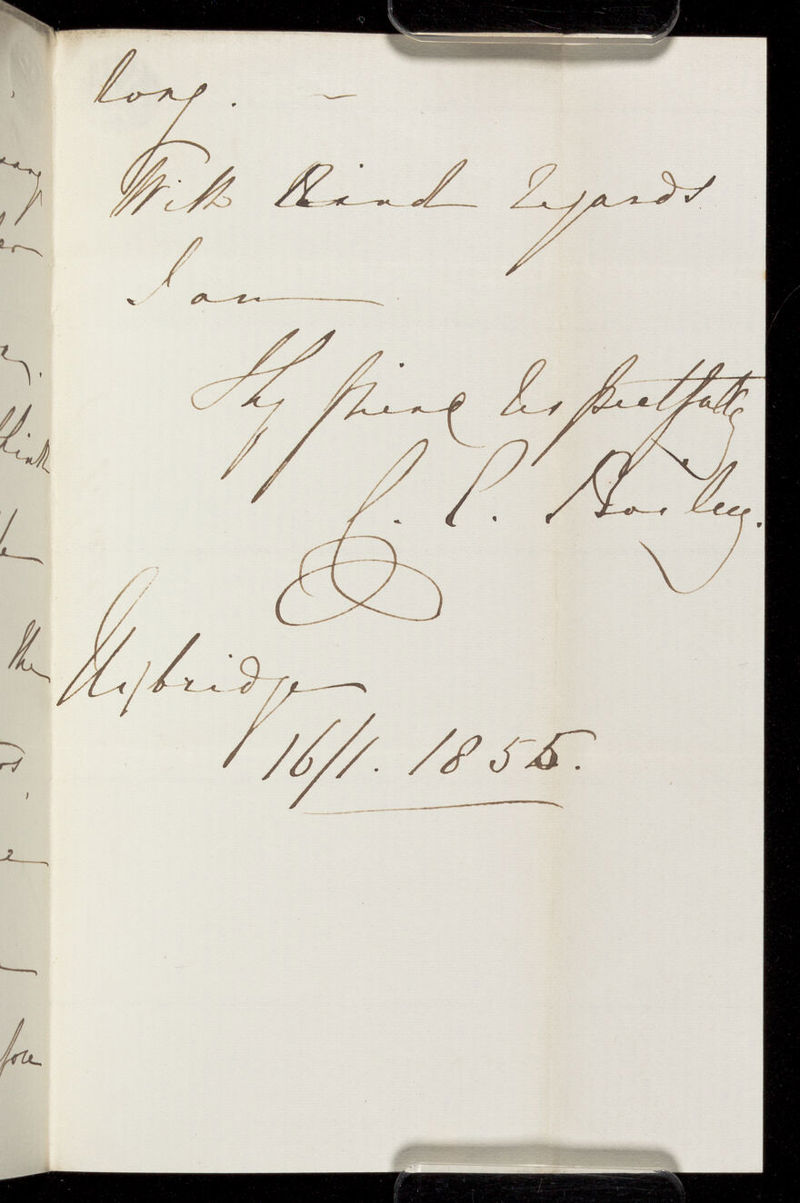 long. –
With Kind Regards
I am
Thy friend Respectfully
C. C.
Uxbridge
16/1. 1855.